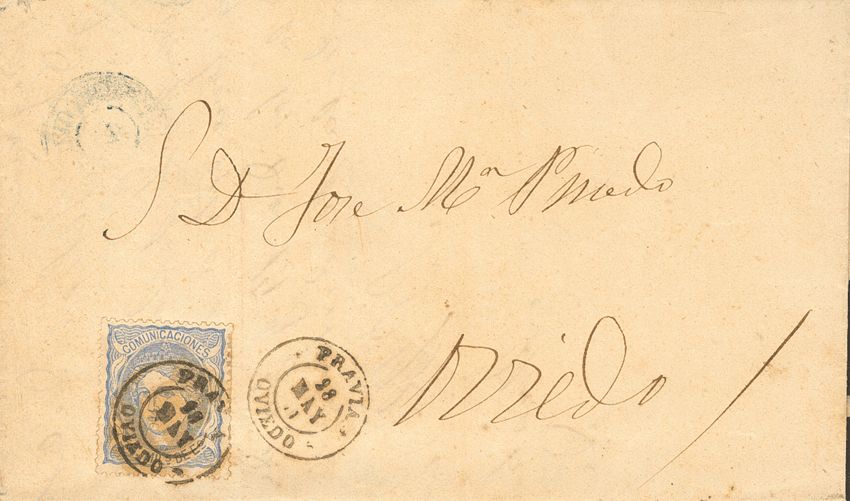 S D Jose Mª Pinedo
Oviedo
COMUNICACIONES
PRAVIA
28
MAY
71
OVIEDO
PRAVIA
28
MAY
OVIEDO